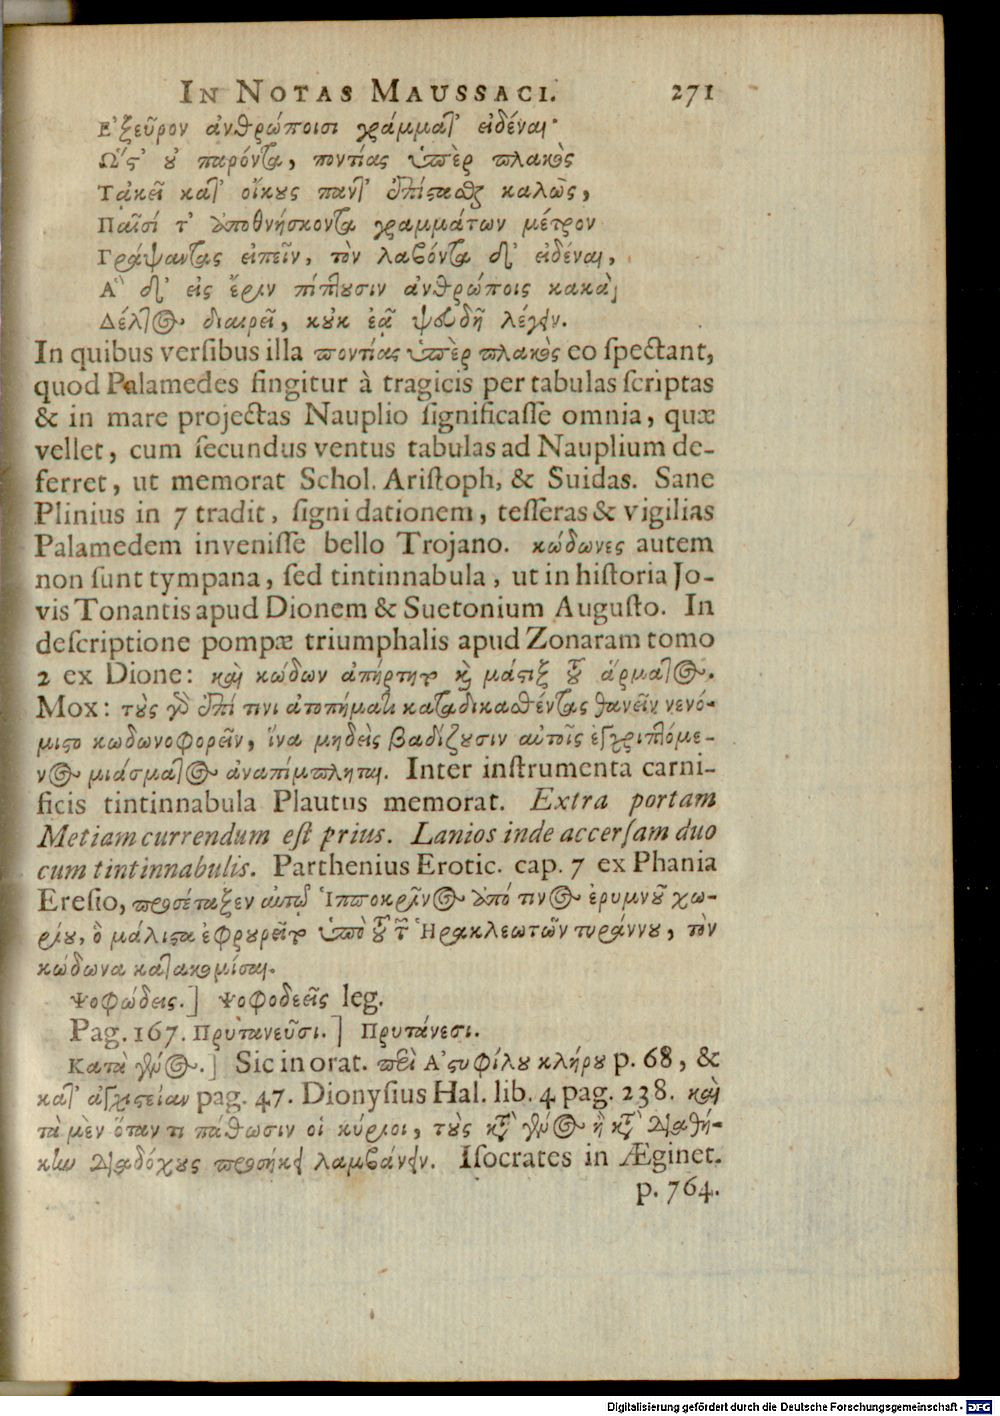 IN NOTAS MAUSSACI. 271
Ἐξεῦρον ἀνθρώποισι γράμματ' εἰδέναι·
Ὥς' οὐ παρόντα, ποντίας ὑπὲρ πλακὸς
Τἀκεῖ κατ' οἴκους πάντ' ἐπίστασθαι καλῶς,
Παῖσί τ' ἀποθνήσκοντα γραμμάτων μέτρον
Γράψαντας εἰπεῖν, τὸν λαβόντα δ' εἰδέναι,
Ἃ δ' εἰς ἔριν πίπτουσιν ἀνθρώποις κακὰ
Δέλτος διαιρεῖ, κοὐκ ἐᾷ ψευδῆ λέγειν.
In quibus verſibus illa ποντίας ὑπὲρ πλακὸς eo ſpectant,
quod Palamedes fingitur à tragicis per tabulas ſcriptas
& in mare projectas Nauplio ſignificaſſe omnia, quæ
vellet, cum ſecundus ventus tabulas ad Nauplium de-
ferret, ut memorat Schol. Ariſtoph, & Suidas. Sane
Plinius in 7 tradit, ſigni dationem, teſſeras & vigilias
Palamedem inveniſſe bello Trojano. κώδωνες autem
non ſunt tympana, ſed tintinnabula, ut in hiſtoria Jo-
vis Tonantis apud Dionem & Suetonium Auguſto. In
deſcriptione pompæ triumphalis apud Zonaram tomo
2 ex Dione: καὶ κώδων ἀπήρτητο καὶ μάστιξ τοῦ ἅρματος.
Mox: τοὺς γὰρ ἐπί τινι ἀτοπήματι καταδικασθέντας θανεῖν νενό-
μιστο κωδωνοφορεῖν, ἵνα μηδεὶς βαδίζουσιν αὐτοῖς ἐγχριπτόμε-
νος μιάσματος ἀναπίμπληται. Inter inſtrumenta carni-
ficis tintinnabula Plautus memorat. Extra portam
Metiam currendum eſt prius. Lanios inde accerſam duo
cum tintinnabulis. Parthenius Erotic. cap. 7 ex Phania
Ereſio, προσέταξεν αὐτῷ Ἱπποκρῖνος ἀπό τινος ἐρυμνοῦ χω-
ρίου, ὃ μάλιστα ἐφρουρεῖτο ὑπὸ τοῦ τῶν Ἡρακλεωτῶν τυράννου, τὸν
κώδωνα κατακομίσαι.
Ψοφώδεις.] Ψοφοδεεῖς leg.
Pag. 167. Πρυτανεῦσι.] Πρυτάνεσι.
Κατὰ γένος.] Sic in orat. περὶ Ἀστυφίλου κλήρου p. 68, &
κατ' ἀγχιστείαν pag. 47. Dionyſius Hal. lib. 4 pag. 238. καὶ
τὰ μὲν ὅταν τι πάθωσιν οἱ κύριοι, τοὺς κατὰ γένος ἢ κατὰ διαθή-
κην διαδόχους προσήκει λαμβάνειν. Iſocrates in Æginet.
p. 764.
Digitalisierung gefördert durch die Deutsche Forschungsgemeinschaft - DFG